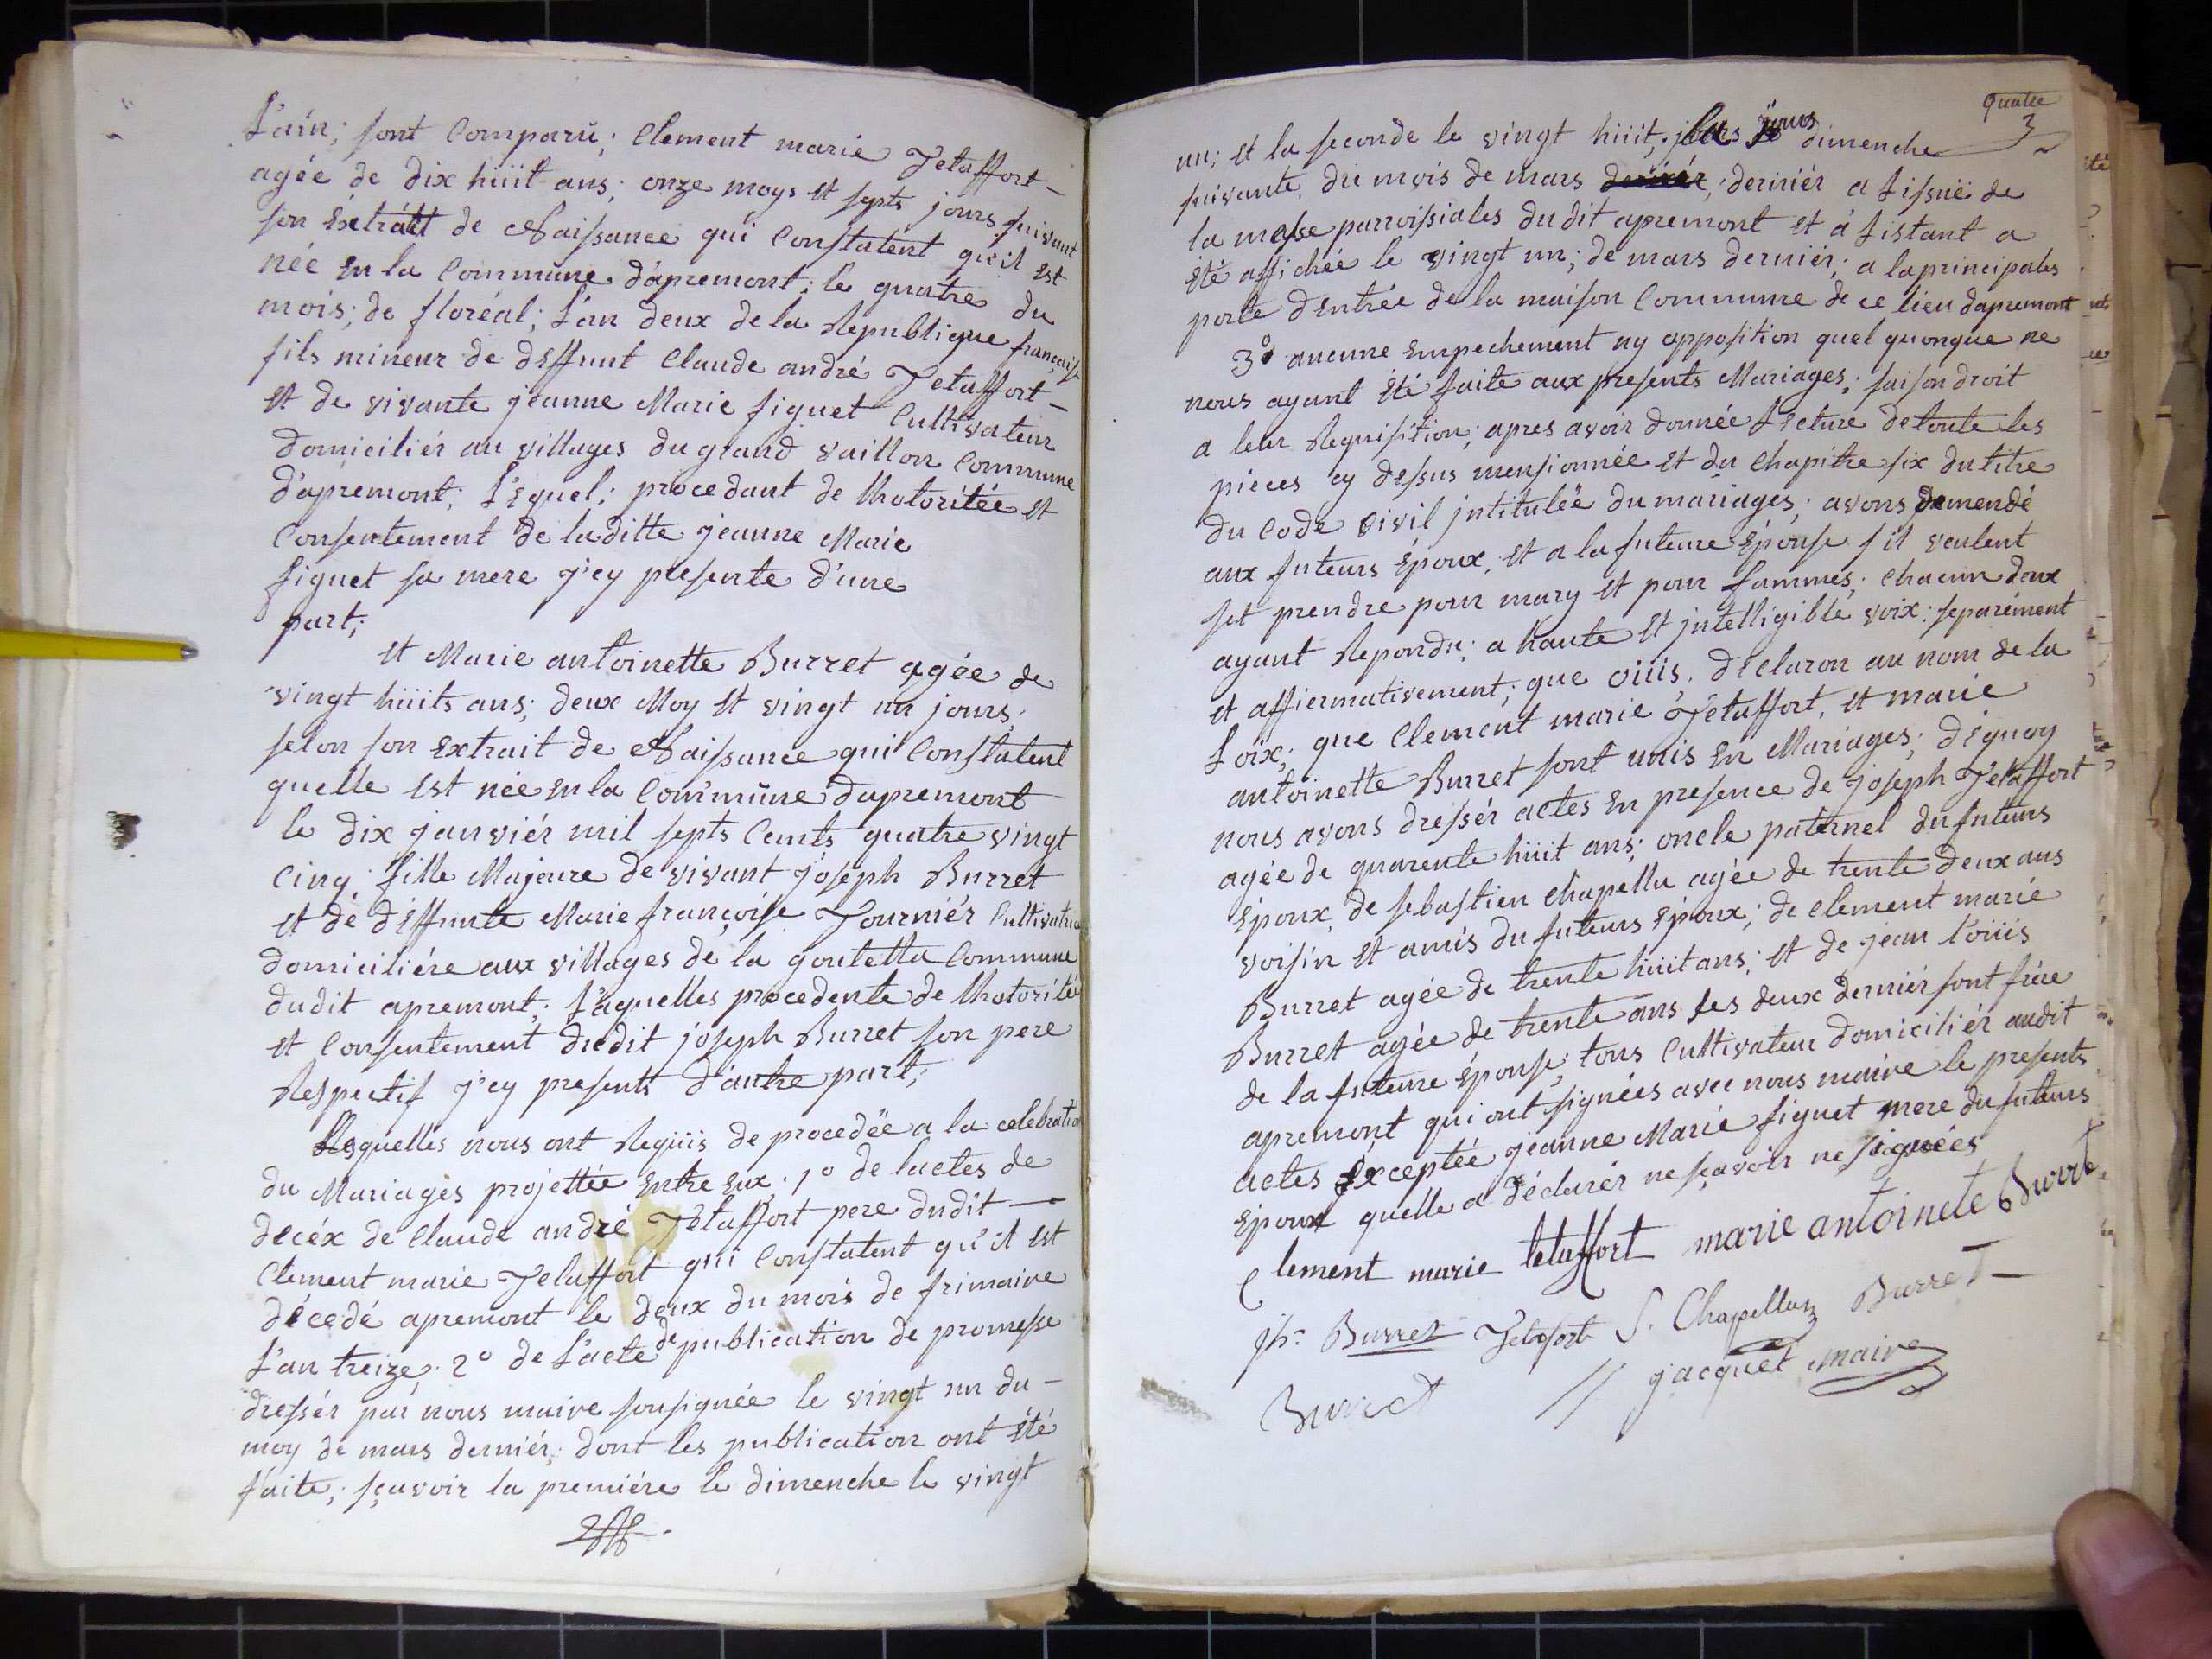 L'ain; sont Comparû; Clement marie Tetaffort
agée de dix hüit ans; onze moys et septs jours suivant
son Extrait de Naissance qui Constatent qu'il Est
née En la Commune d'apremont; le quatre du
mois; de floréal; L'an deux de la Republique française
fils mineur de deffunt Claude andré Tetaffort
Et de vivante jeanne Marie figuet Cultivateur
domiciliér au villages du grand vaillon Commune
d'apremont; L'Equel; procedant de Lhotoritée Et
Consentement de laditte jeanne Marie
figuet sa mere j'cy presente d'une
part;
Et Marie antoinette Burret agée de
vingt hüits ans; deux Moy Et vingt un jours;
selon son Extrait de Naissance qui Constatent
quelle Est née En la Commûne dapremont
le dix janviér mil septs Cents quatre vingt
Cinq; fille Majeure de vivant joseph Burret
Et de deffunte Marie françoise Tourniér Cultivatrice
domiciliére aux villages de la goutetta Commune
dudit apremont; L'aquelles procedente de Lhotoritée
et Consentement dudit joseph Burret son pere
Respectif j'cy presents d'autre part;
Lesquelles nous ont Reqüis de procedëe a la celebration
du Mariages projettée Entre Eux. 1º de lactes de
décéx de Claude andré Tetaffort pere dudit
Clement marie Tetaffort qui Constatent qu'il Est
décedé apremont le deux du mois de frimaire
L'an treize. 2º de L'acte de publication de promesse
dressér par nous maire sousignée le vingt un du
moy de mars derniér; dont les publication ont Eté
faite; sçavoir la premiére le dimenche le vingt
quatre
3
un; Et la seconde le vingt hüit; jours dimenche
suivante, du mois de mars derniér; derniér a Lissuë de
la messe parroissiales du dit apremont Et a Listant a
Eté affichée le vingt un; de mars derniér; a la principales
porte dEntrée de la maison Commune de ce lieu dapremont
3º aucune Empechement ny opposition quel quonque ne
nous ayant Eté faite aux presents Mariages; faison droit
a leur Requisition; apres avoir donnée Lecture de toute les
pieces cy dessus mensionnée Et du Chapitre six du titre
du Code Civil jntitulëe du mariages; avons demendé
aux futeurs Epoux, Et a la futeure Epouse s'il veulent
set prendre pour mary Et pour fammes; Chacun deux
ayant Repondu; a haute Et jntelligible voix: separément
et affiermativement; que oüis. déclaron au nom de la
Loix; que Clement marie Tetaffort, Et marie
antoinette Burret sont unis En Mariages; déquoy
nous avons dressér actes En presence de joseph Tetaffort
agée de quarente hüit ans; oncle paternel du futeurs
Epoux, de sebastien Chapellu agée de trente deux ans
voisin Et amis du futeurs Epoux; de Clement marie
Burret agée de trente hüit ans; Et de jean Loüis
Burret agée de trente ans les deux derniér sont frére
de la futeure Epouse, tous Cultivateur domiciliér audit
apremont qui ont signées avec nous maire le presents
actes Exceptée jeanne Marie figuet mere du futeurs
Epoux quelle a déclarér ne sçavoir ne signées
Clement marie tetaffort marie antoinete Burret
jph. Burret Tetaffort S. Chapelluz Burret
Burret jacquet maire